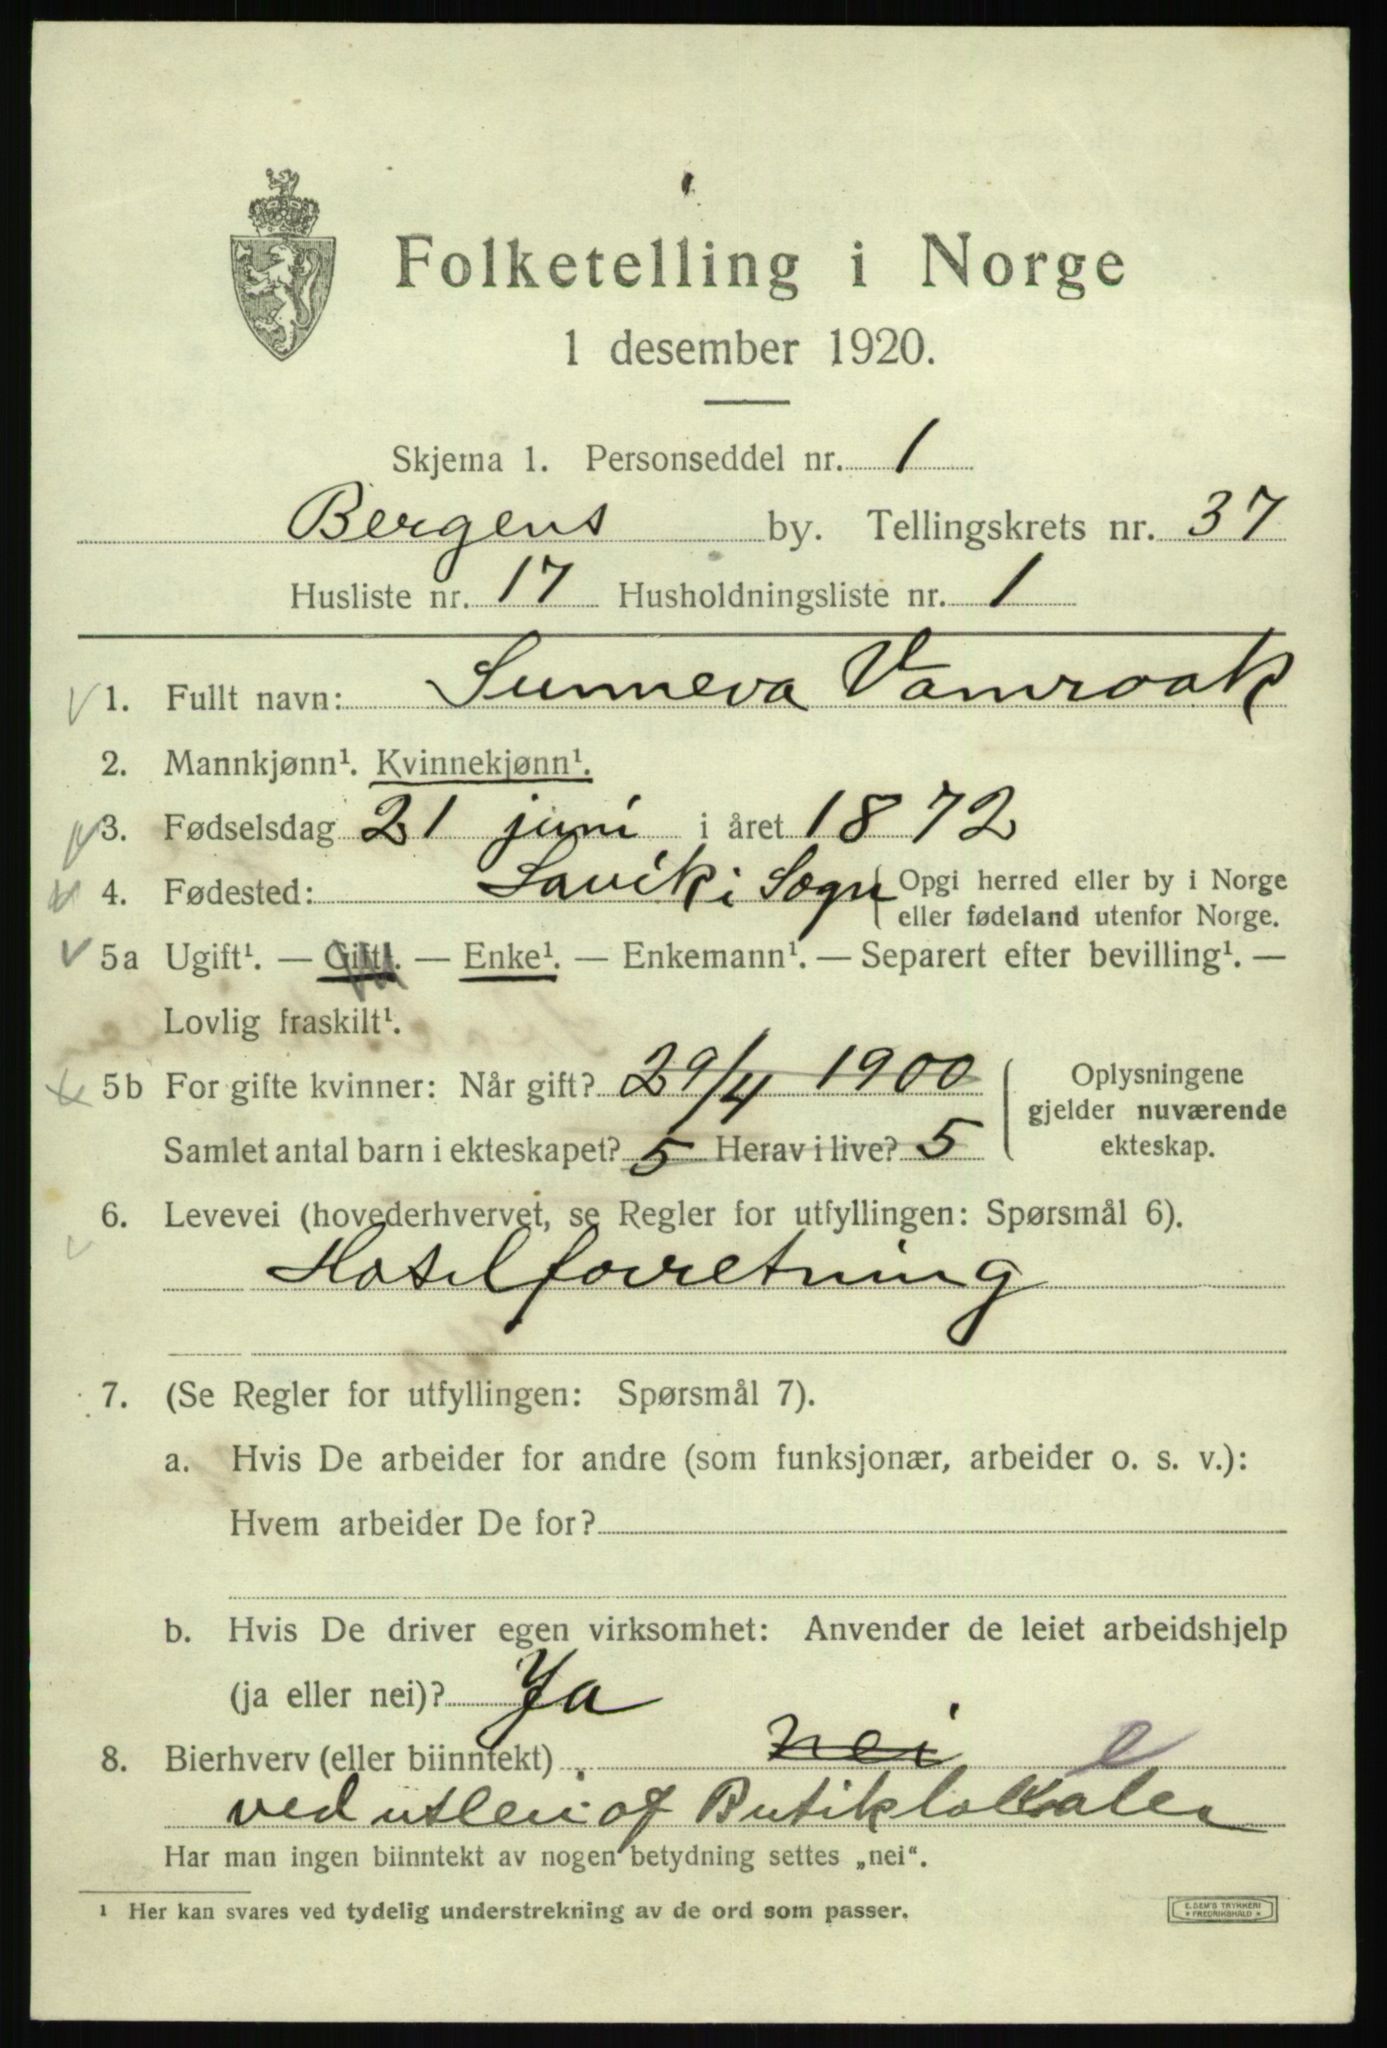 Folketelling i Norge
1 desember 1920.
Skjema 1. Personseddel nr. 1
Bergens by. Tellingskrets nr. 37
Husliste nr. 17 Husholdningsliste nr. 1
1. Fullt navn: Sunneva Vamraak
2. Mannkjønn¹. Kvinnekjønn¹.
3. Fødselsdag 21 juni i året 1872
4. Fødested: Lavik i Sogn (Opgi herred eller by i Norge
eller fødeland utenfor Norge.
5a Ugift¹. — Gift¹. — Enke¹. — Enkemann¹. — Separert efter bevilling¹. —
Lovlig fraskilt¹.
5b For gifte kvinner: Når gift? 29/4 1900
Samlet antal barn i ekteskapet? 5 Herav i live? 5
(Oplysningene
gjelder nuværende
ekteskap.
6. Levevei (hovederhvervet, se Regler for utfyllingen: Spørsmål 6).
Hotelforretning
7. (Se Regler for utfyllingen: Spørsmål 7).
a. Hvis De arbeider for andre (som funksjonær, arbeider o. s. v.):
Hvem arbeider De for?
b. Hvis De driver egen virksomhet: Anvender de leiet arbeidshjelp
(ja eller nei)? Ja
8. Bierhverv (eller biinntekt) nei e
ved utleie af Butiklokaler
Har man ingen biinntekt av nogen betydning settes „nei“.
¹ Her kan svares ved tydelig understrekning av de ord som passer.
E. SEM'S TRYKKERI
* FREDRIKSHALD *